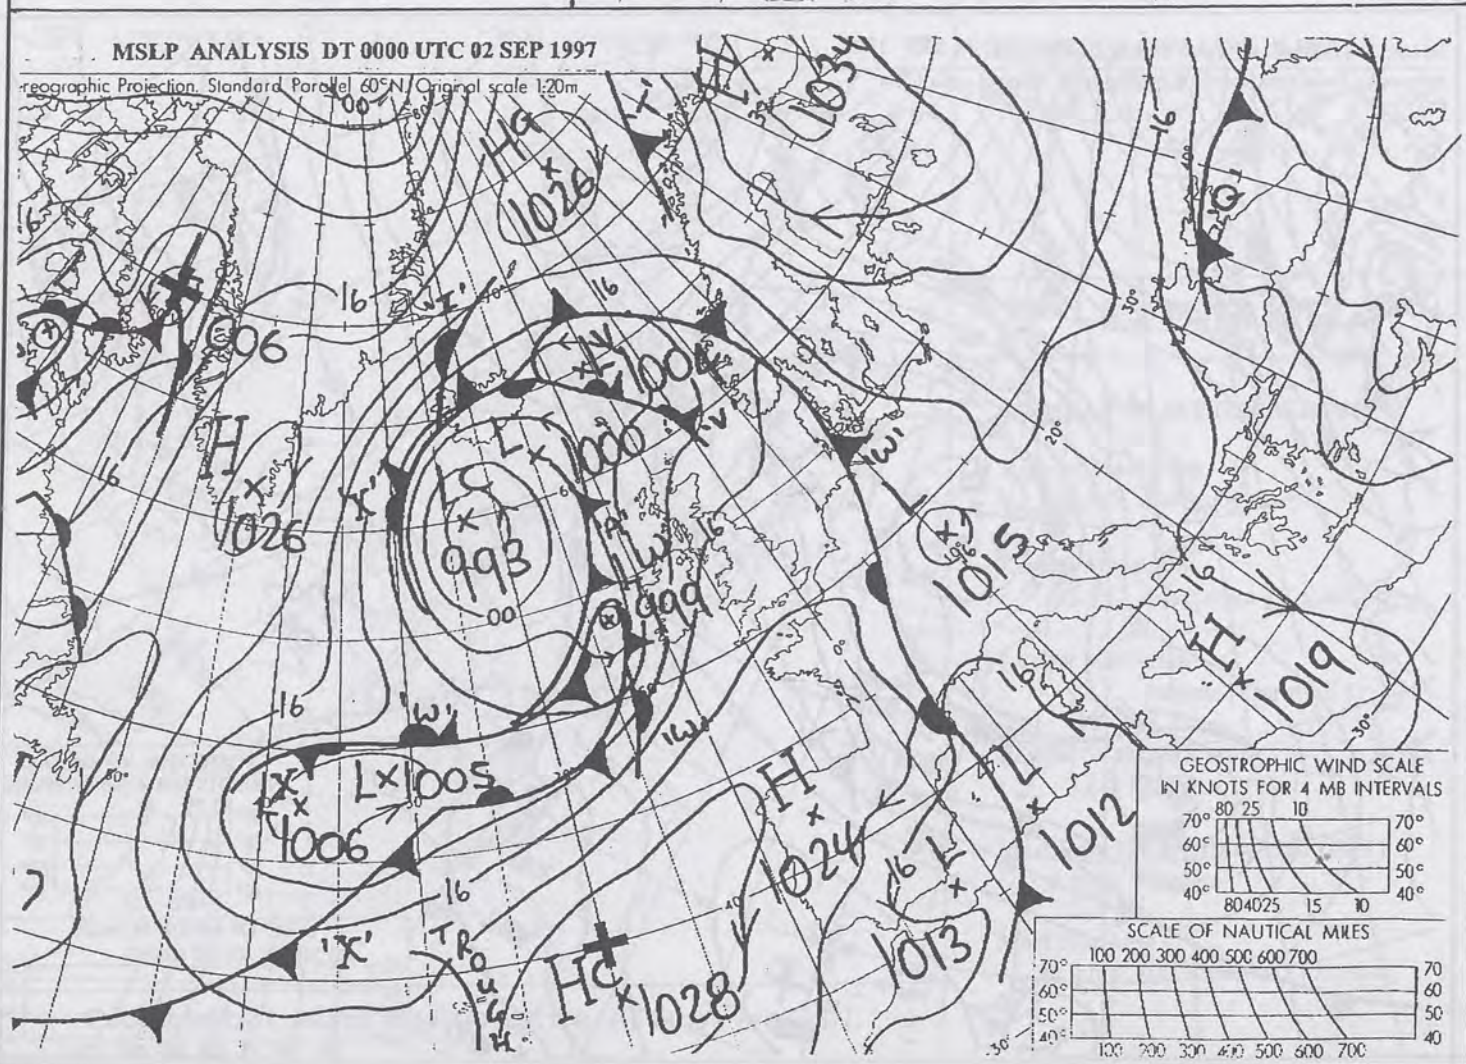 MSLP ANALYSIS DT 0000 UTC 02 SEP 1997
reographic Projection. Standard Parallel 60°N. Original scale 1:20m
00
H
1034
'T'
HG
1026
16
'Q'
16
'Z'
16
1006
LY
1004
'V'
H
1026
16
L
1000
'X'
LC
993
'W'
16
LW
999
L
1015
30°
20°
00
16
H
1019
16
'W'
'W'
16
LX
1006
L 1005
H
1024
L
1012
16
L
1013
16
'X'
TROUGH
HC
1028
GEOSTROPHIC WIND SCALE
IN KNOTS FOR 4 MB INTERVALS
80 25 10
70° 70°
60° 60°
50° 50°
40° 40°
80 40 25 15 10
SCALE OF NAUTICAL MILES
100 200 300 400 500 600 700
70° 70
60° 60
50° 50
40° 40
100 200 300 400 500 600 700